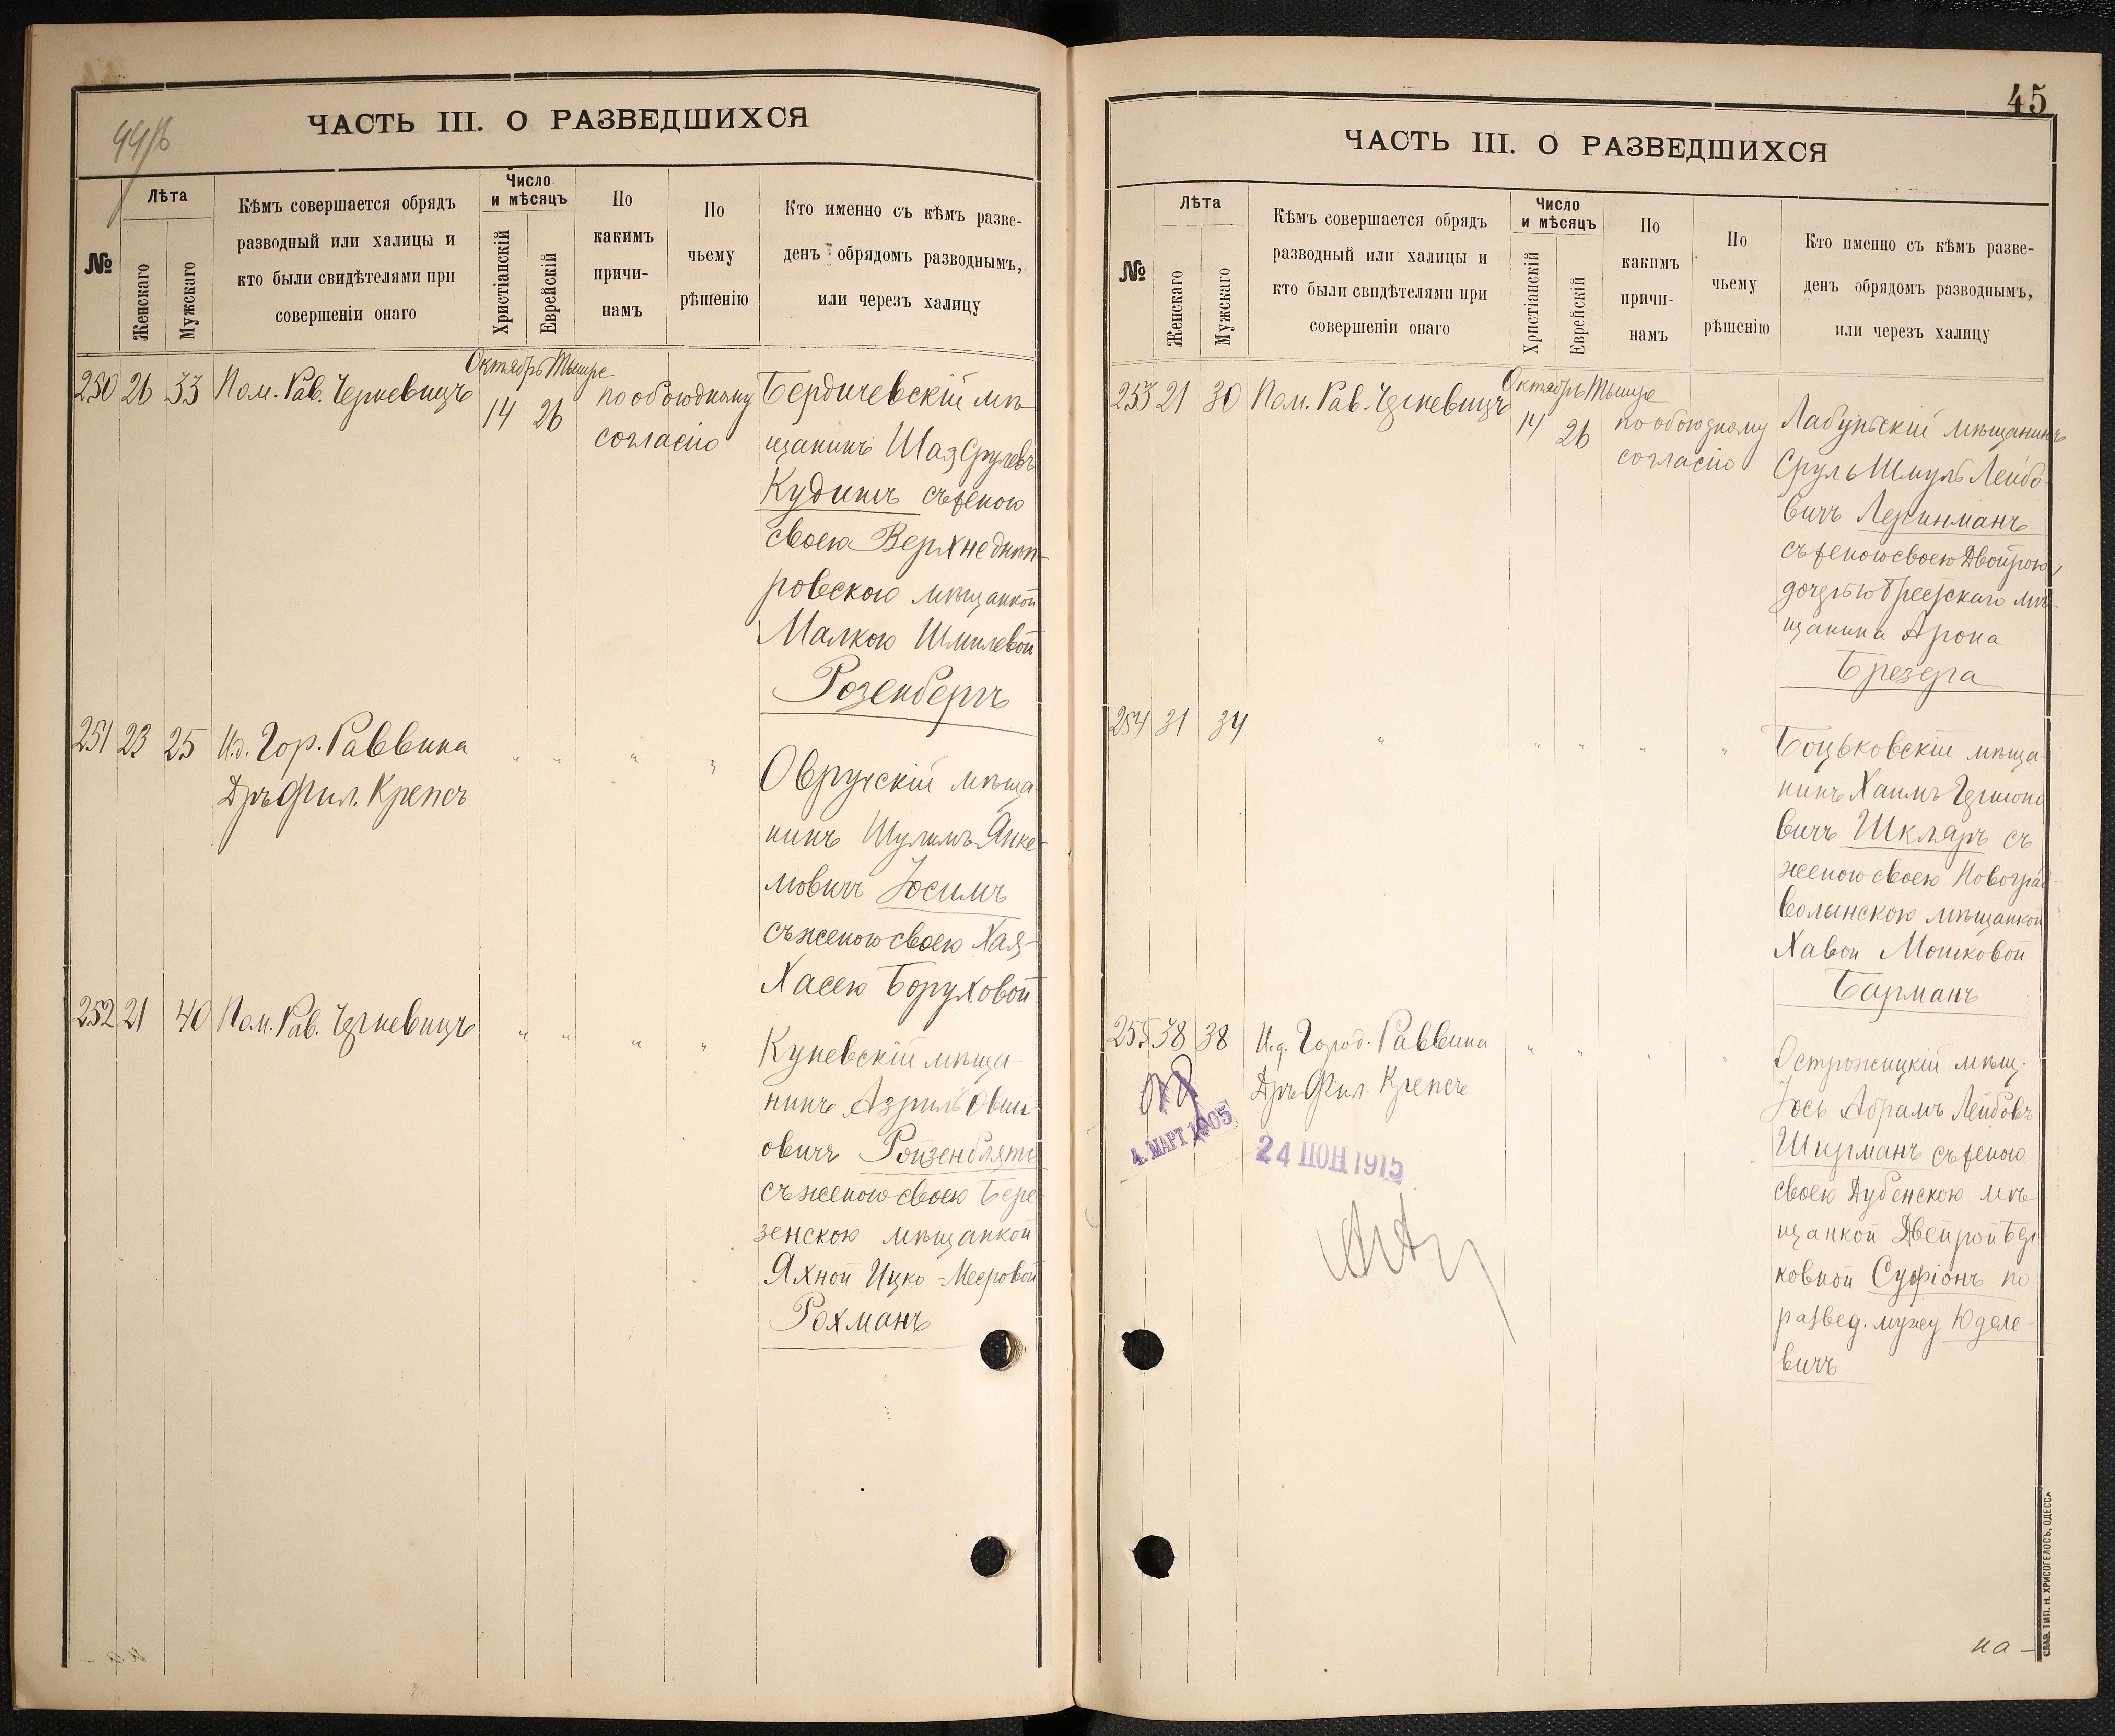 ЧАСТЬ III. О РАЗВЕДШИХСЯ
№
Лѣта
Женскаго
Мужскаго
Кѣмъ совершается обрядъ
разводный или халицы и
кто были свидѣтелями при
совершеніи онаго
Число
и мѣсяцъ
Христіанскій
Еврейскій
По
какимъ
причи-
намъ
По
чьему
рѣшенію
Кто именно съ кѣмъ разве-
денъ обрядомъ разводнымъ,
или черезъ халицу
Октябрь Тышре
250 26 33 Пом. Рав. Черкевицъ 14 26 по обоюдному
согласію
Бердичевскій мѣ-
щанинъ Шая Срулевъ
Кудишъ съ женою
своею Верхнеднѣп-
ровскою мѣщанкой
Малкою Шмилевой
Розенбергъ
251 23 25 И.д. Гор. Раввина
Дръ Фил. Крепсъ
" " " "
Овручскій мѣща-
нинъ Шулимъ Янке-
лiовичъ Юсимъ
съ женою своею Хая-
Хасею Боруховой
252 21 40 Пом. Рав. Черкевицъ " " " "
Куневскій мѣща-
нинъ Азриль Овші-
овичъ Ройзенблятъ
съ женою своею Бере-
зенскою мѣщанкой
Яхной Ицко-Меeровой
Рохманъ
45
ЧАСТЬ III. О РАЗВЕДШИХСЯ
№
Лѣта
Женскаго
Мужскаго
Кѣмъ совершается обрядъ
разводный или халицы и
кто были свидѣтелями при
совершеніи онаго
Число
и мѣсяцъ
Христіанскій
Еврейскій
По
какимъ
причи-
намъ
По
чьему
рѣшенію
Кто именно съ кѣмъ разве-
денъ обрядомъ разводнымъ,
или черезъ халицу
Октябрь Тышре
253 21 30 Пом. Рав. Черкевицъ 14 26 по обоюдному
согласію
Лабунскій мѣщанинъ
Сруль Шмуль Лейбо-
вичъ Леринманъ
съ женою своею Двойрою,
дочерью Брестскаго мѣ-
щанина Арона
Брезера
254 31 34 " " " " "
Боцьковскій мѣща
нинъ Хаимъ Гершоно
вичъ Шкляръ съ
женою своею Новоград-
волынскою мѣщанкой
Хавой Мошковой
Барманъ
255 38 38 И.д. Город. Раввина
Дръ Фил. Крепсъ
" " " "
Острожицкій мѣщ.
Іось Абрамъ Лейбовъ
Ширманъ съ женою
своею Дубенскою мѣ-
щанкой Двейрой Бер-
ковной Суфіонъ по
развед. мужу Юделе-
вичъ
4. МАРТ 1905
24 ІЮН 1915
на -
СЛАВ. ТИП. Н. ХРИСОГЕЛОСЪ, ОДЕССА